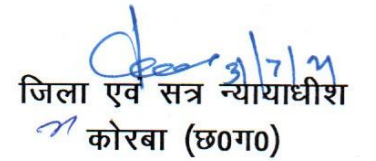 जिला एवं सत्र न्यायाधीश
कोरबा (छ0ग0)